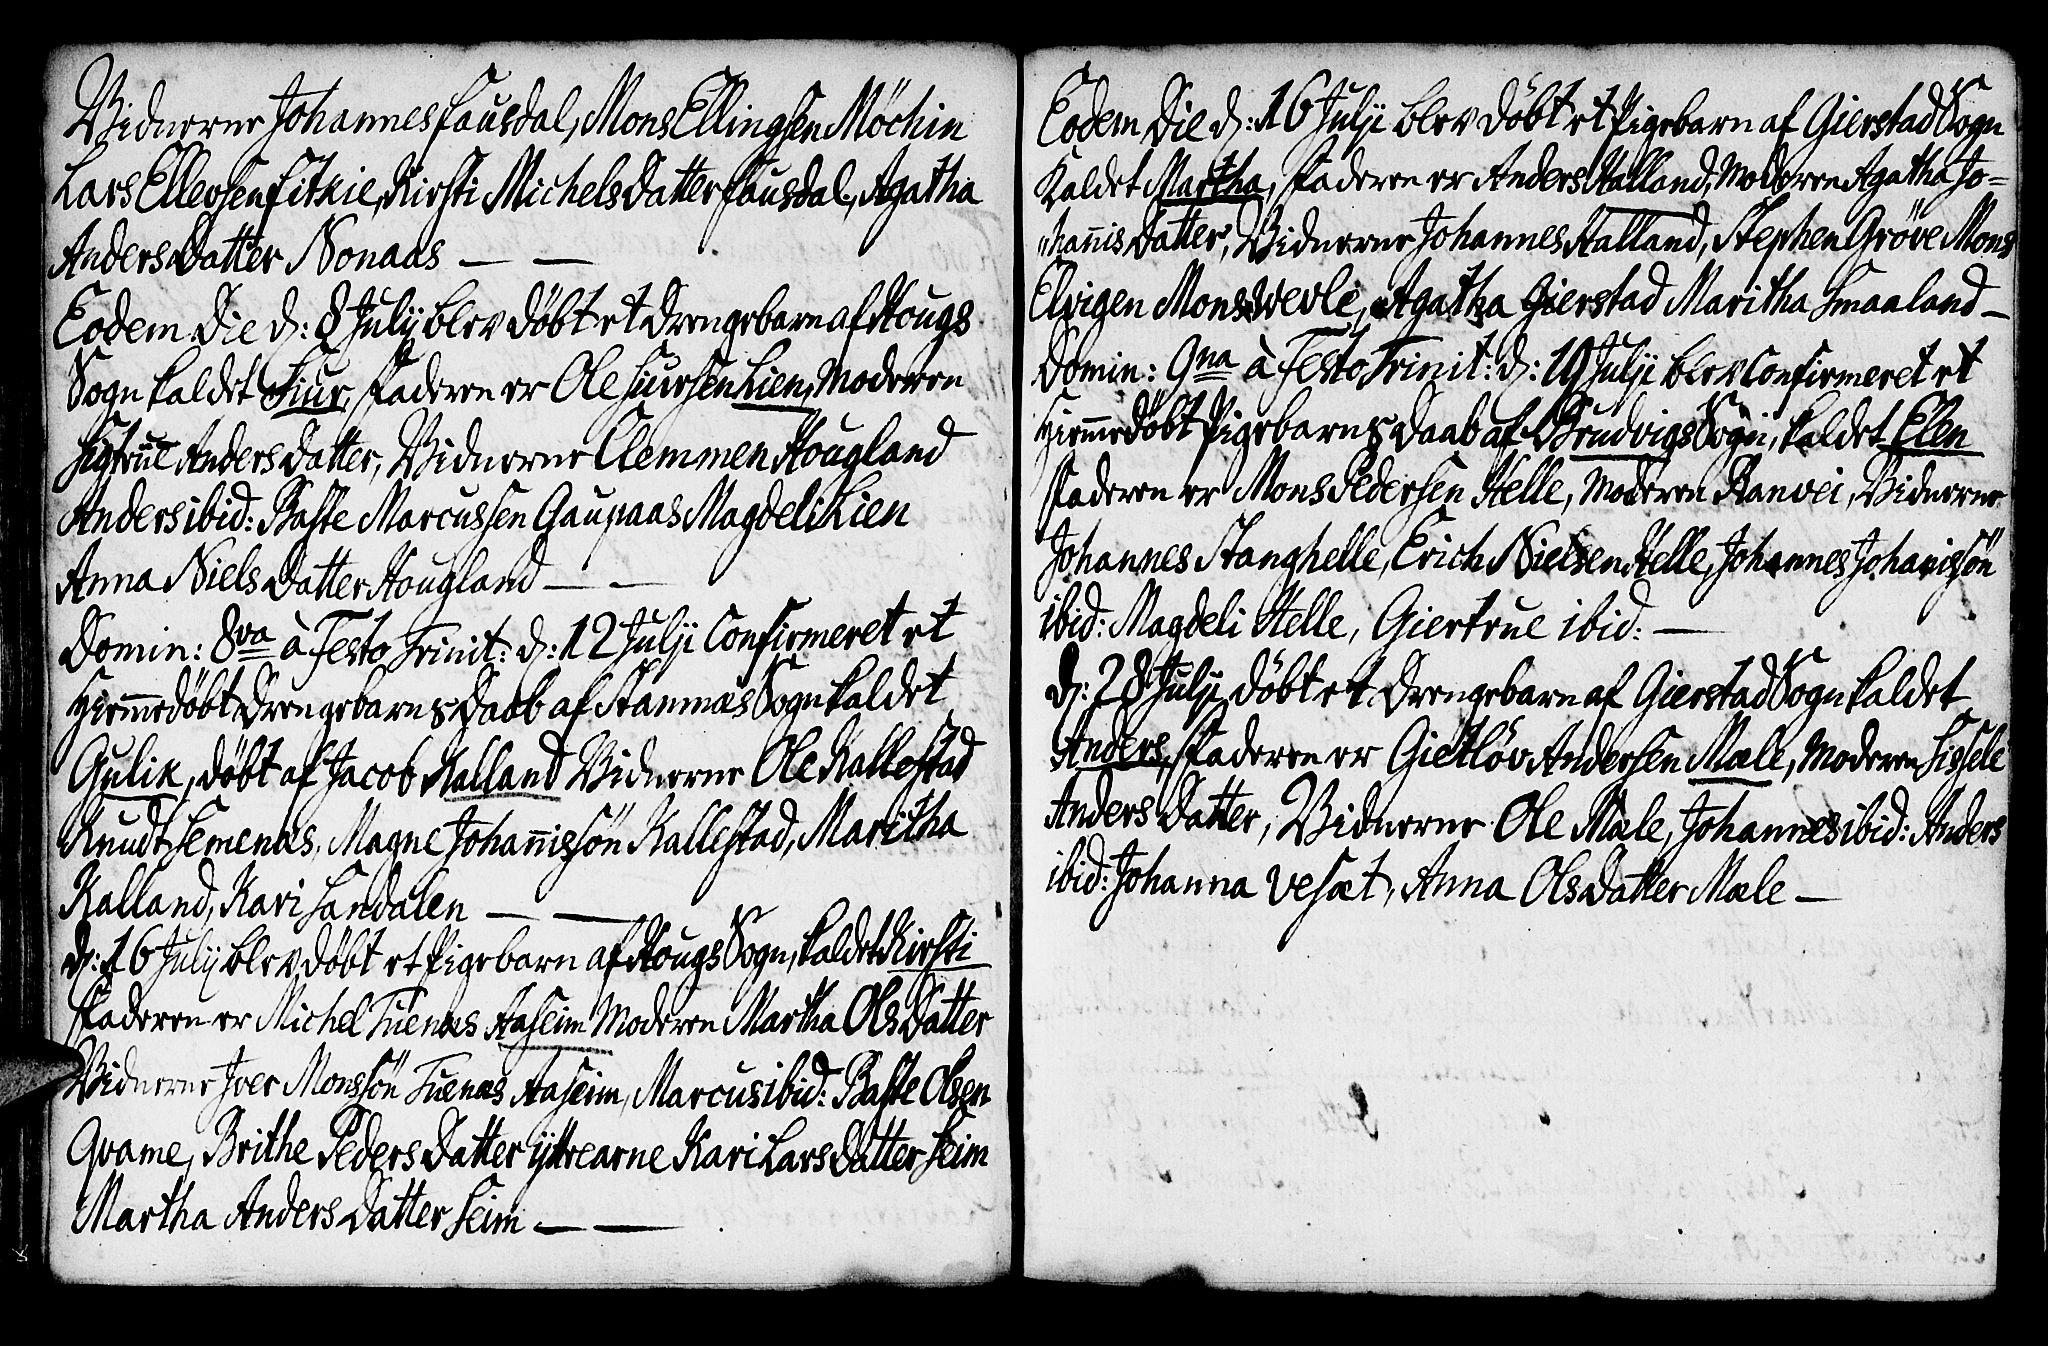 Vidnerne Johannes Fausdal, Mons Ellingsen Möchin
Lars Ellevsen Fitkie, Kirsti Michels Datter Fausdal, Agatha
Anders Datter Nonaas — —
Eodem Die d: 8 Julij blev döbt et Drengebarn af Hougs
Sogn kaldet Siur, Faderen er Ole Siursen Lien, Moderen
Sigtrue Anders Datter, Vidnerne Clemmen Hougland
Anders ibid: Baste Marcussen Gaupaas Magdeli Lien
Anna Niels Datter Hougland — —
Domin: 8va à Festo Trinit: d: 12 Julji Confirmeret et
Hiemmedöbt Drengebarns Daab af Stamnæs Sogn kaldet
Gulik, döbt af Jacob Kalland Vidnerne Ole Kallestad
Knudt Semenæs, Magne Johanissön Kallestad, Maritha
Kalland, Kari Sandalen — —
d: 16 Julij blev döbt et Pigebarn af Hougs Sogn, kaldet Kirsti
Faderen er Michel Tuenæs Aaseim Moderen Martha Ols Datter
Vidnerne Iver Monssön Tuenæs Aaseim, Marcus ibid: Baste Olsen
Qvame, Brithe Peders Datter ijttrearne Kari Lars Datter Seim
Martha Anders Datter Seim — —
Eodem Die d: 16 Julji blev döbt et Pigebarn af Gierstad Sogn
Kaldet Martha, Faderen er Anders Halland, Moderen Agatha Jo=
"hanis Datter, Vidnerne Johannes Halland, Stephen Gröve Mons
Elvigen Mons Wevle, Agatha Gierstad Maritha Smaaland —
Domin: 9na à Festo Trinit: d: 19 Julji blev Confirmeret et
Hiemmedöbt Pigebarns Daab af Brudvigs Sogn, kaldet Elen
Faderen er Mons Pedersen Helle, Moderen Ranvei, Vidnerne
Johannes Stanghelle, Erich Nielsen Helle, Johannes Johanissön
ibid: Magdeli Helle, Giertrue ibid: —
d: 28 Julji döbt et Drengebarn af Gierstad Sogn kaldet
Anders, Faderen er Gietlöv Andersen Mæle, Moderen Sissele
Anders Datter, Vidnerne Ole Mæle, Johannes ibid: Anders
ibid: Johanna Vesæt, Anna Ols Datter Mæle —